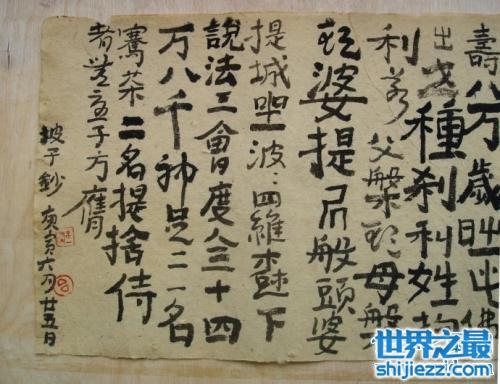 壽八万歲時此佛
出世種刹利姓拘
利若父般頭母般
頭婆提居般頭婆
提城坐波：羅樹下
說法三會度人三十四
万八千神足二一名
騫茶二名提捨侍
者無憂子方膺
子鈔 庚寅六月廿五日
世界之最
shijiezz1.com